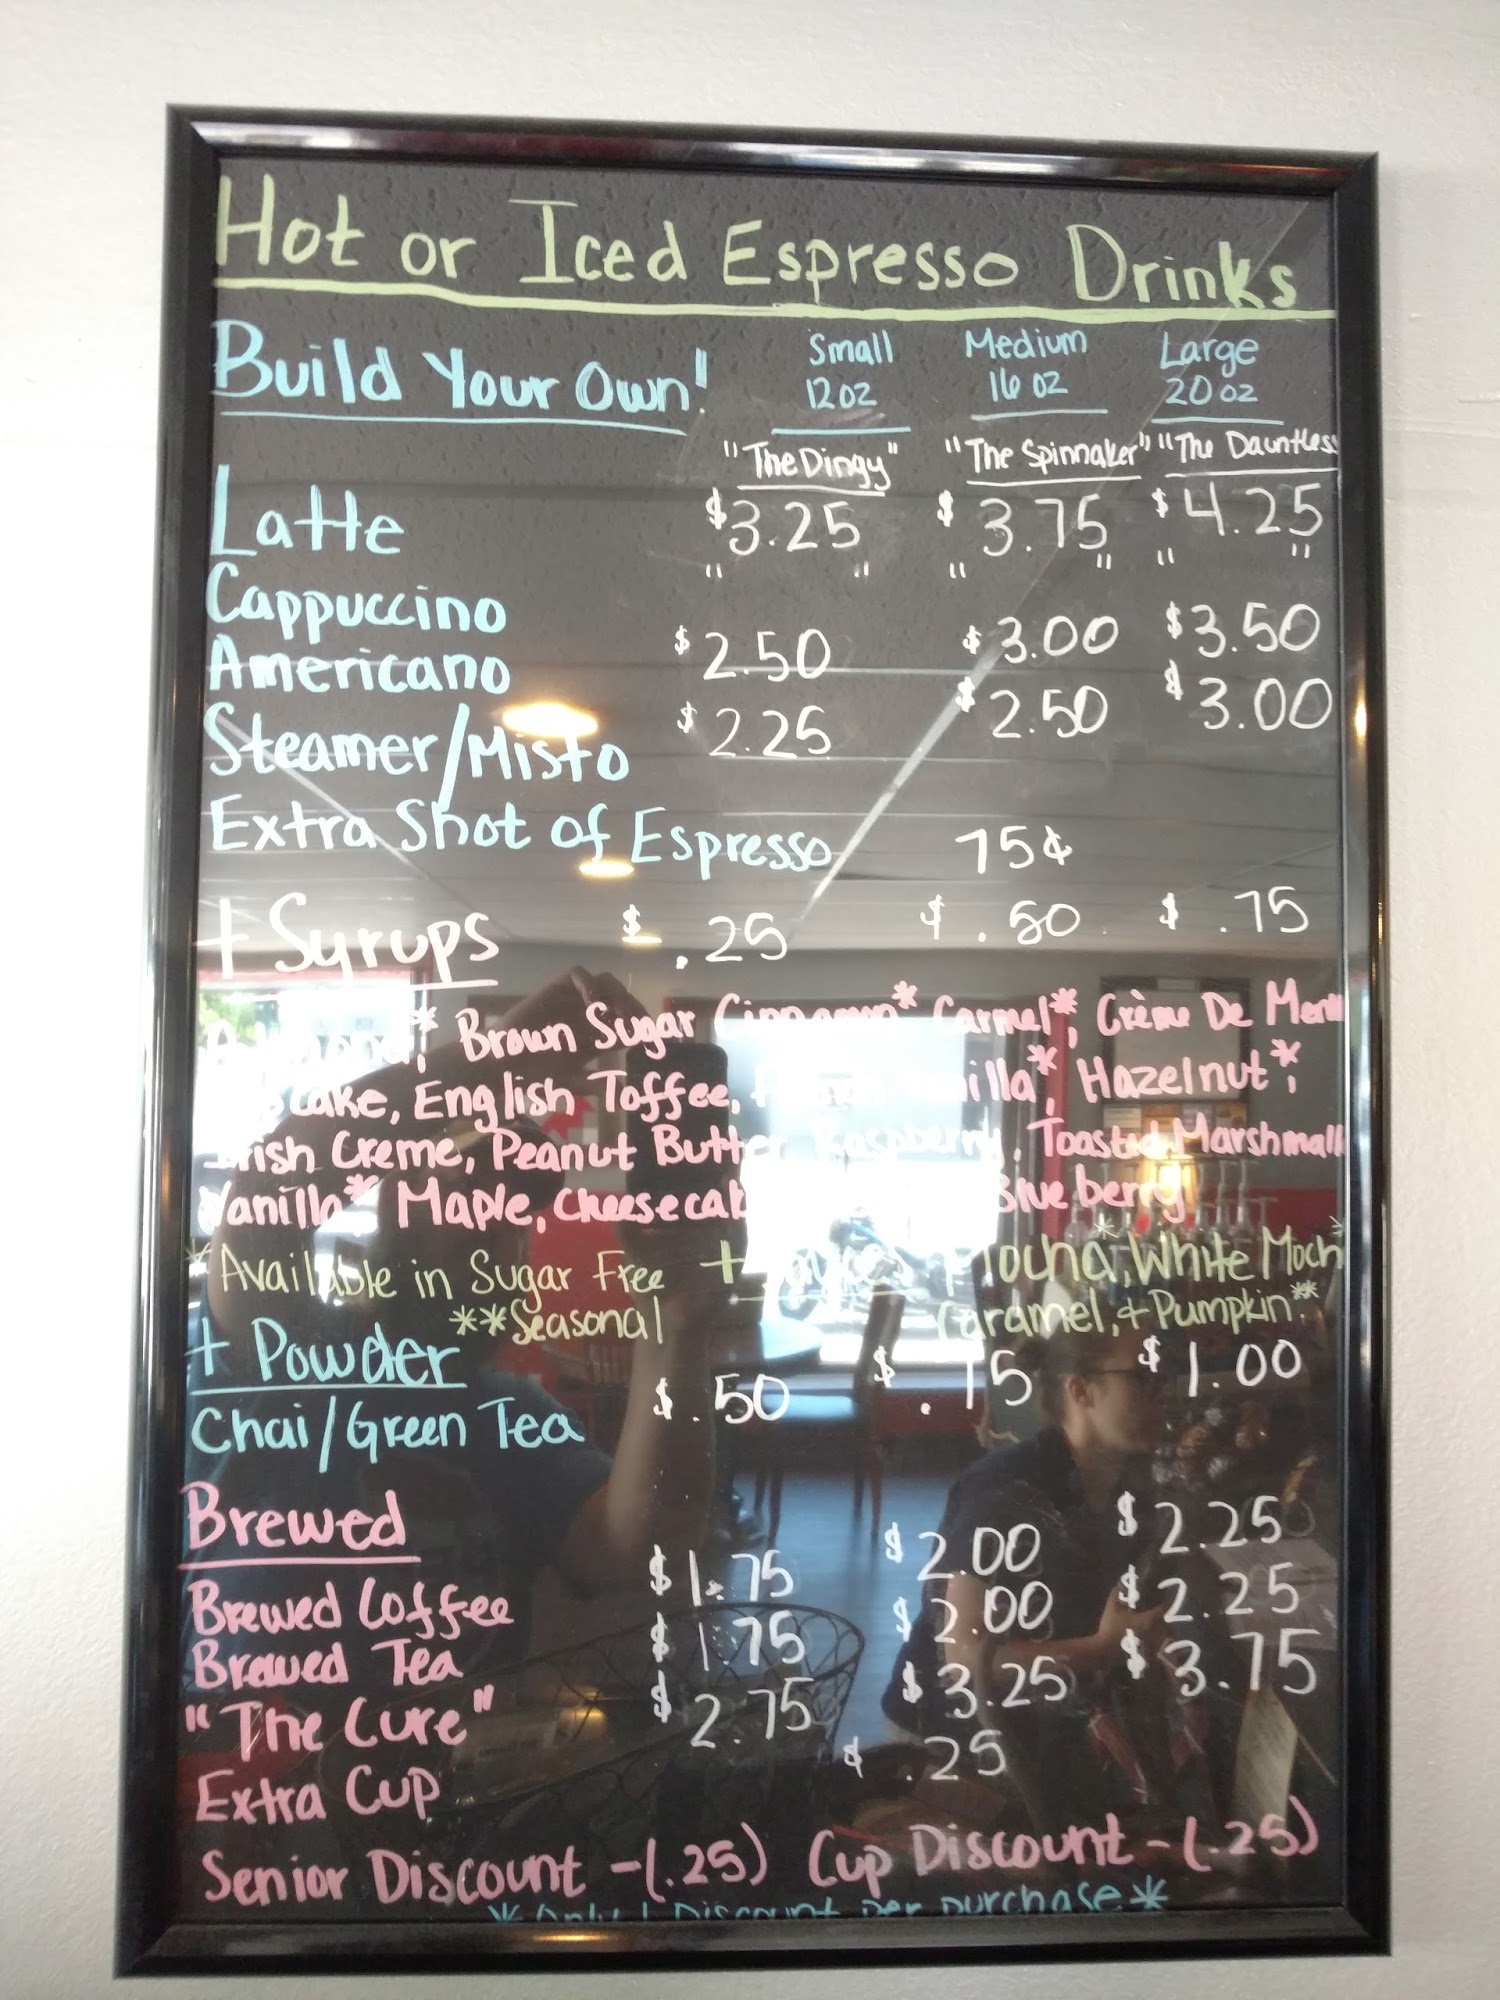 Hot or Iced Espresso Drinks
Build Your Own! Small Medium Large
12 oz 16 oz 20 oz
"The Dingy" "The Spinnaker" "The Dauntless
Latte $3.25 $3.75 $4.25
Cappuccino " " " " " "
Americano $2.50 $3.00 $3.50
Steamer/Misto $2.25 $2.50 $3.00
Extra Shot of Espresso 75¢
+ Syrups $.25 $.50 $.75
Almond*, Brown Sugar Cinnamon* Carmel*, Crème De Men
cake, English Toffee, Hazelnut*,
Irish Creme, Peanut Butter Raspberry, Toasted Marshmall
Vanilla* Maple, Cheesecak Blueberry
*Available in Sugar Free + Mocha*, White Moch
**Seasonal Caramel, + Pumpkin**
+ Powder
Chai/Green Tea $.50 $.75 $1.00
Brewed
Brewed Coffee $1.75 $2.00 $2.25
Brewed Tea $1.75 $2.00 $2.25
"The Cure" $2.75 $3.25 $3.75
Extra Cup ¢.25
Senior Discount -(.25) Cup Discount -(.25)
*Only 1 Discount per purchase*